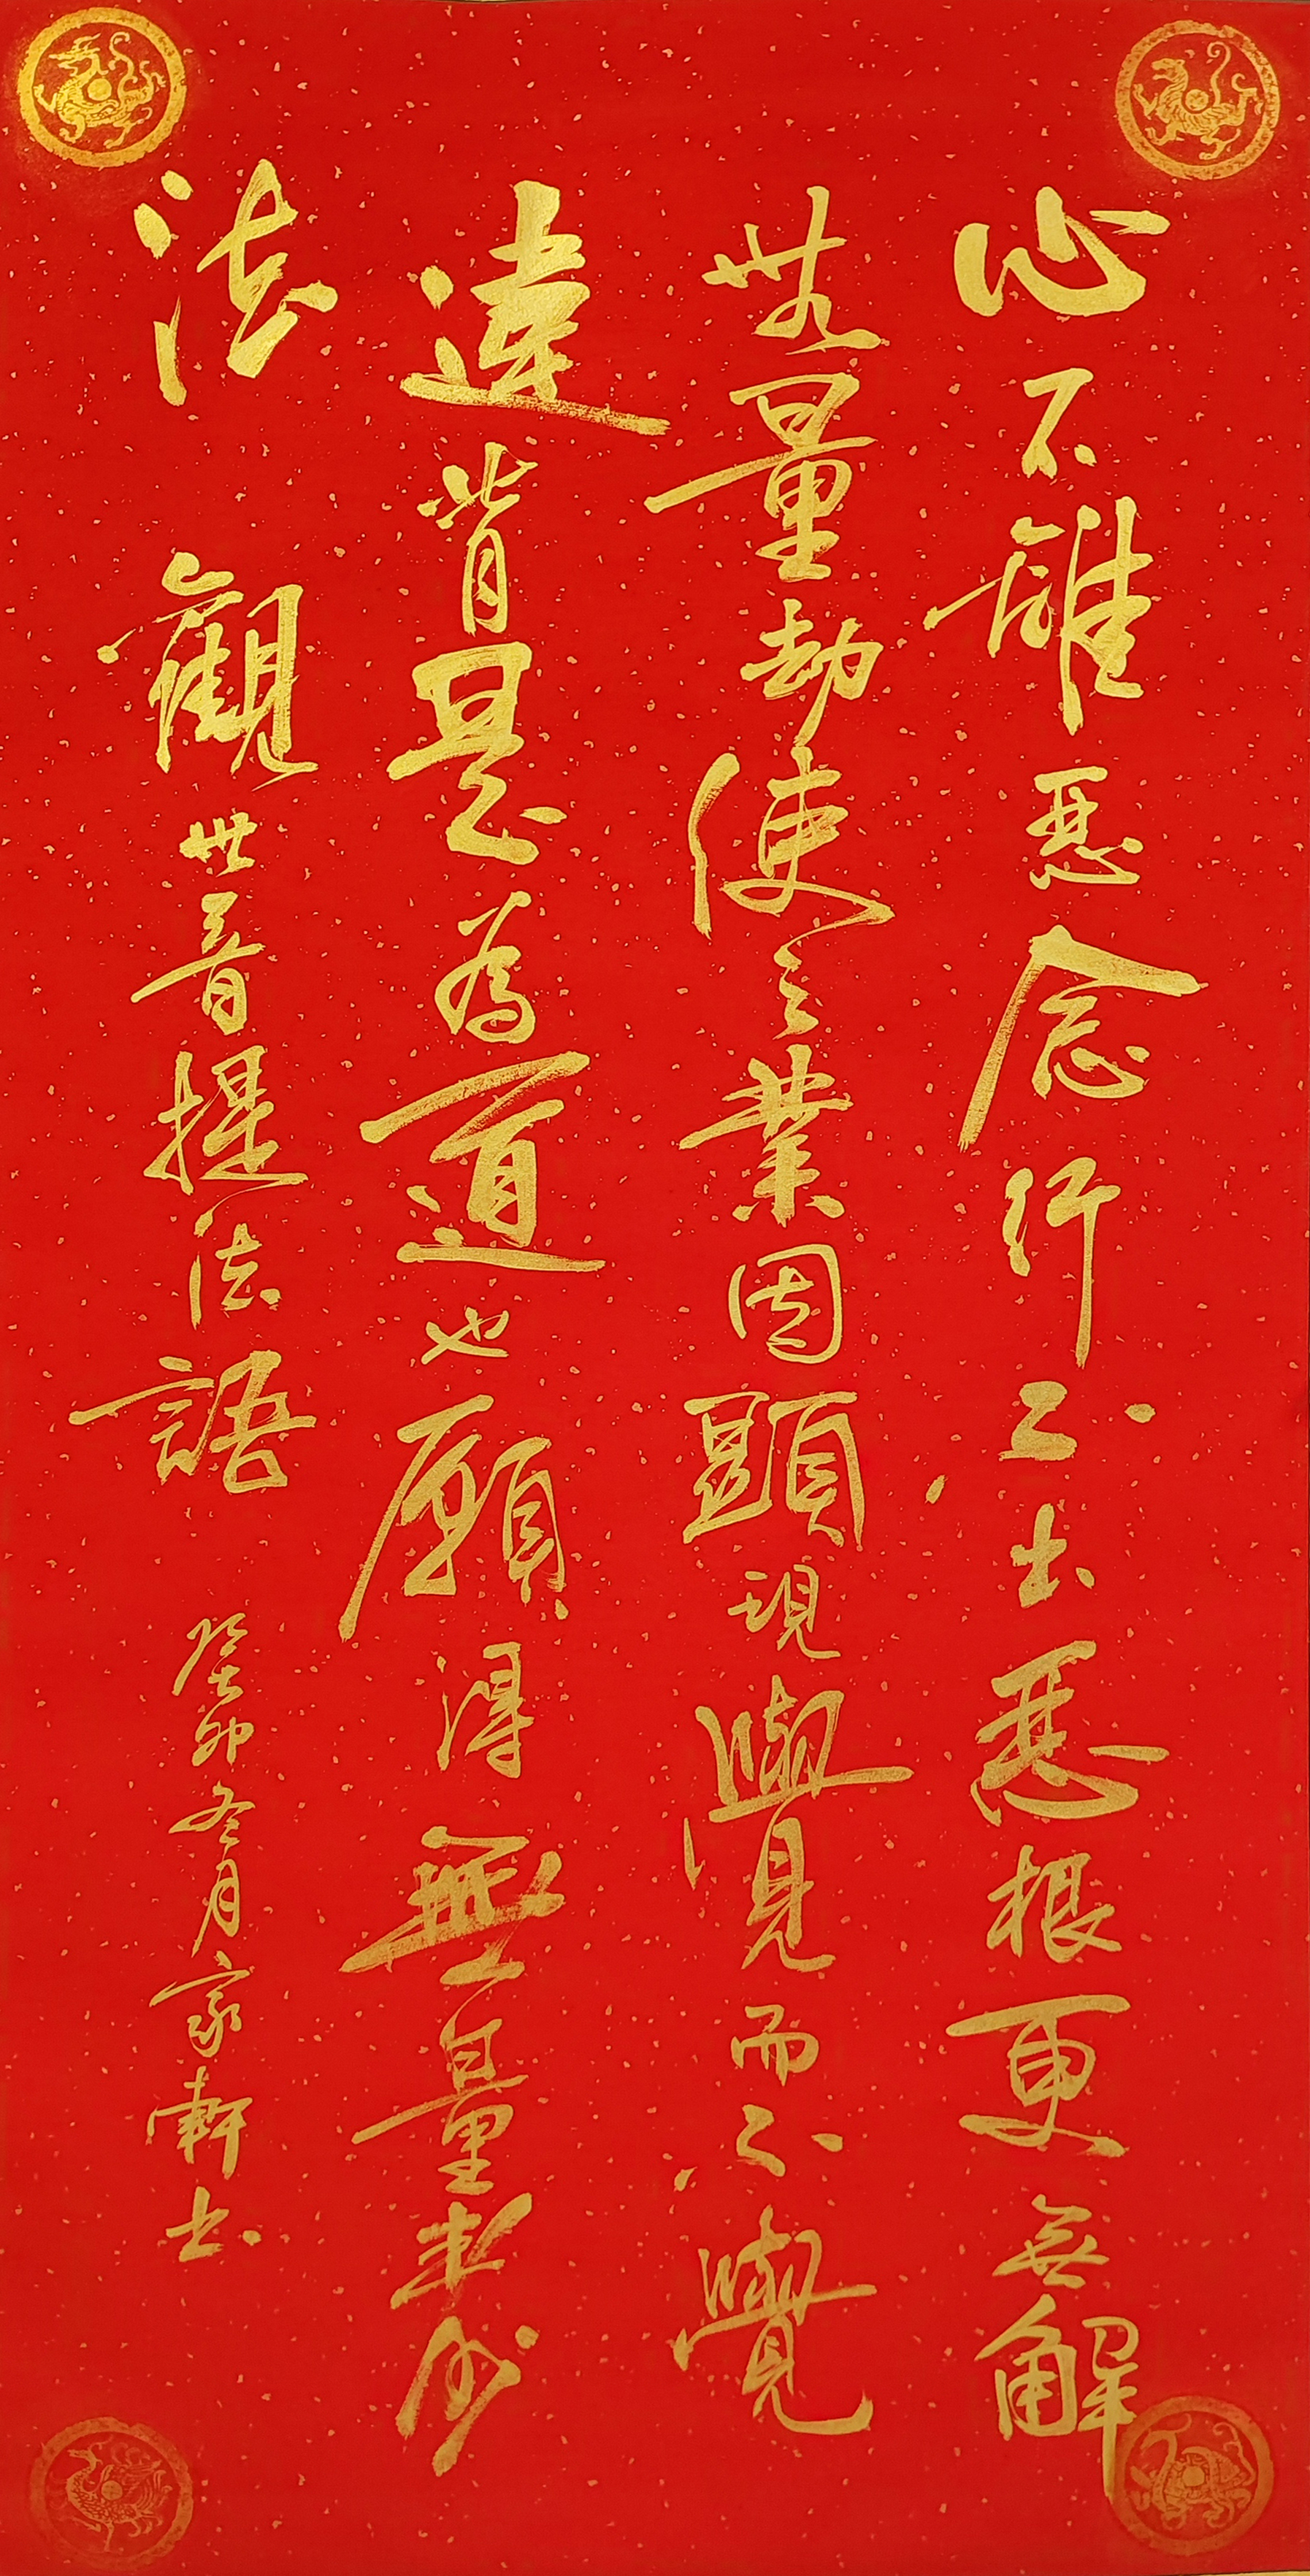 心不離惡念行不出惡根更無解
無量劫使之業因顯現覺而不覺
違背是為道也願得無量妙
法 觀世音提法語 癸卯冬月家軒书